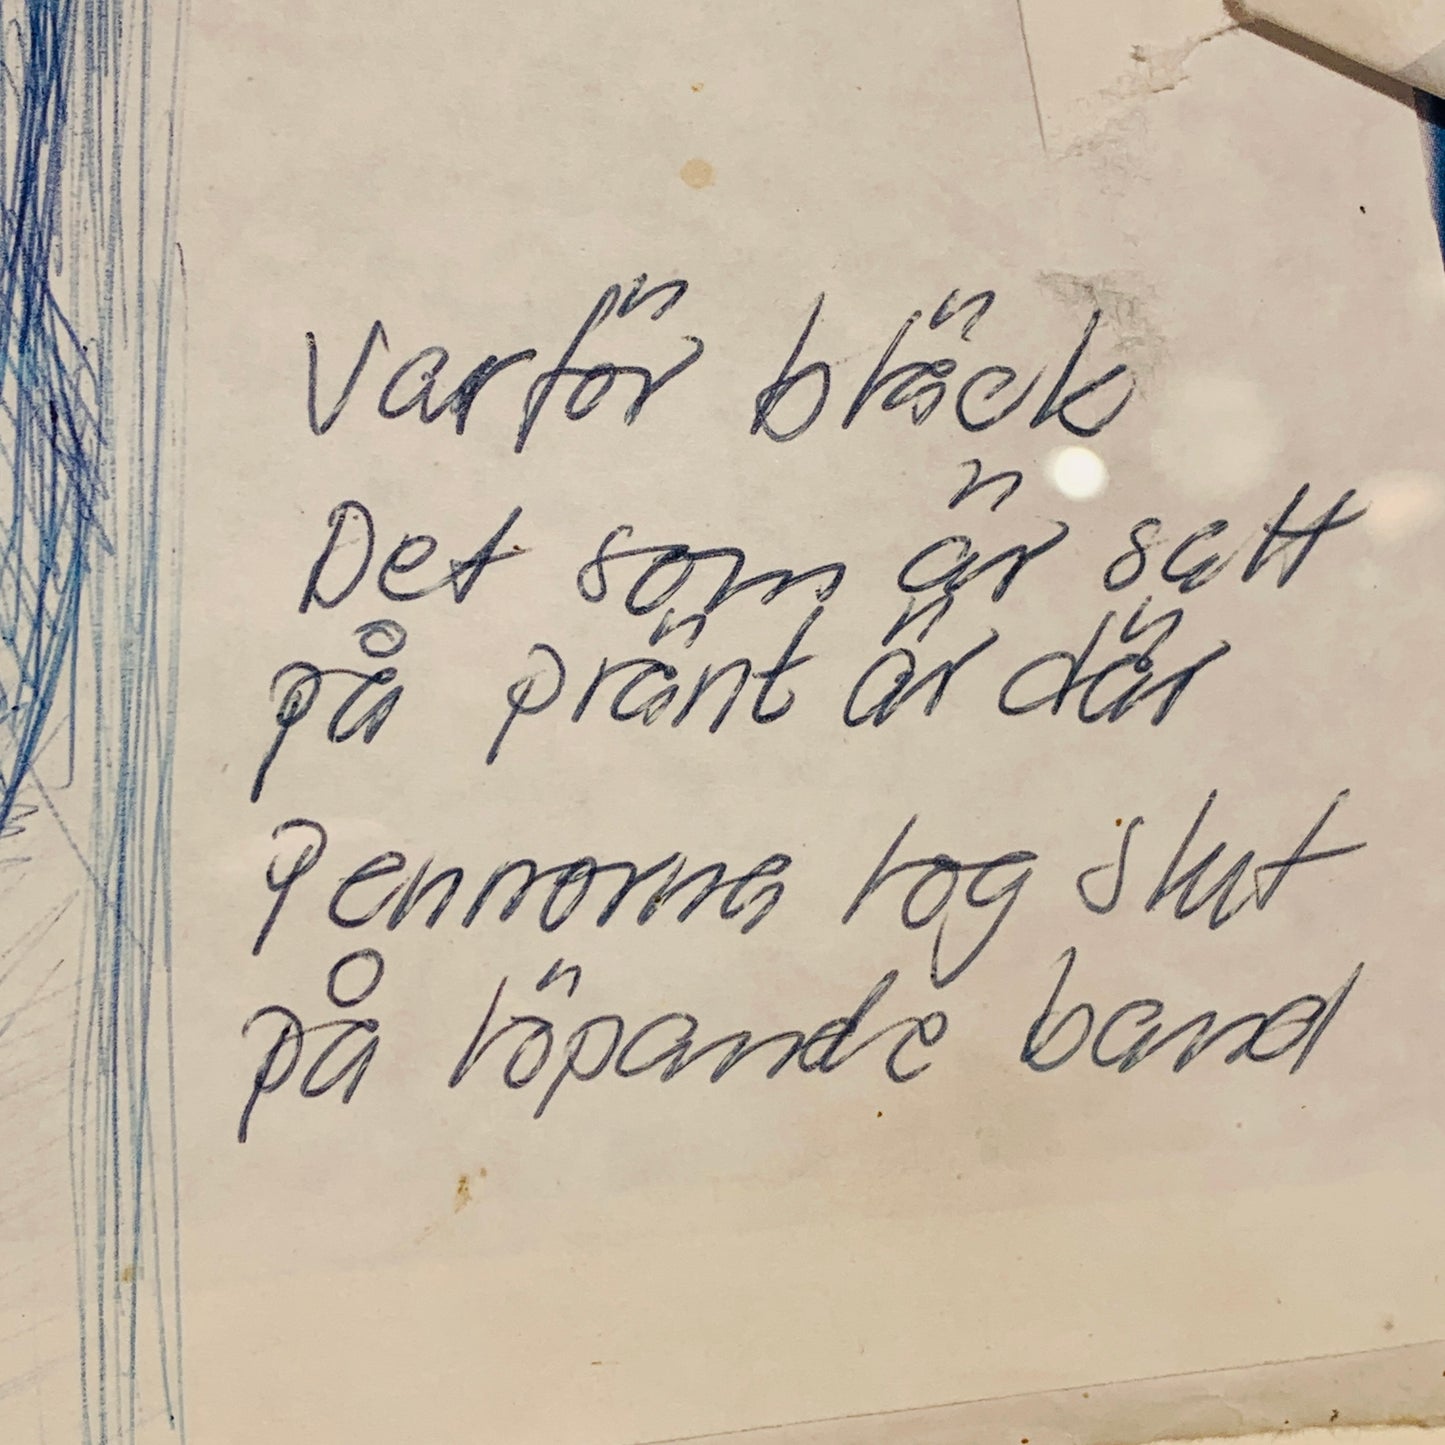 Varför bläck
Det som är satt
på pränt är där
Pennorna tog slut
på löpande band